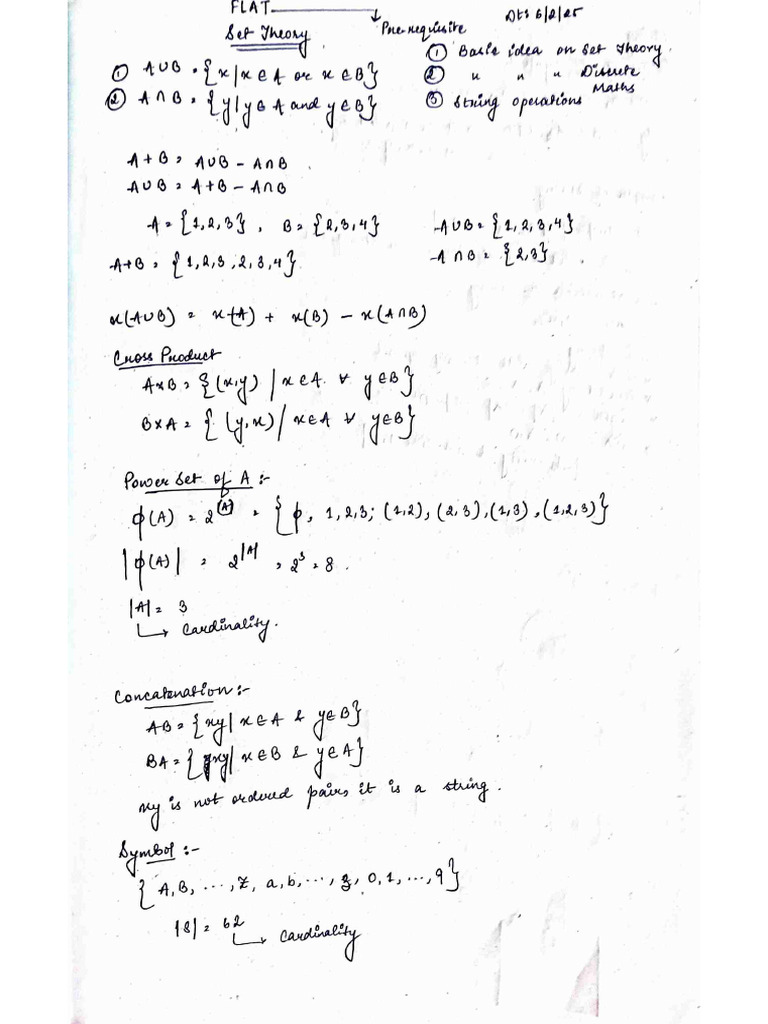 FLAT
Dt: 6/2/25
Set Theory
Pre-requisite
① Basic idea on Set Theory.
② " " " Discrete Maths
③ String operations
① A∪B = {x | x∈A or x∈B}
② A∩B = {y | y∈A and y∈B}
A+B = A∪B − A∩B
A∪B = A+B − A∩B
A = {1,2,3}, B = {2,3,4} A∪B = {1,2,3,4}
A+B = {1,2,3,2,3,4} A∩B = {2,3}
x(A∪B) = x(A) + x(B) − x(A∩B)
Cross Product
A×B = {(x,y) | x∈A ∀ y∈B}
B×A = {(y,x) | x∈A ∀ y∈B}
Power Set of A :-
ϕ(A) = 2^(A) = {ϕ, 1,2,3; (1,2), (2,3), (1,3), (1,2,3)}
|ϕ(A)| = 2^|A| = 2^3 = 8.
|A| = 3
↳ Cardinality.
Concatenation :-
AB = {xy | x∈A & y∈B}
BA = {xy | x∈B & y∈A}
xy is not ordered pair, it is a string.
Symbol :-
{A, B, ..., Z, a, b, ..., z, 0, 1, ..., 9}
|S| = 62
↳ Cardinality